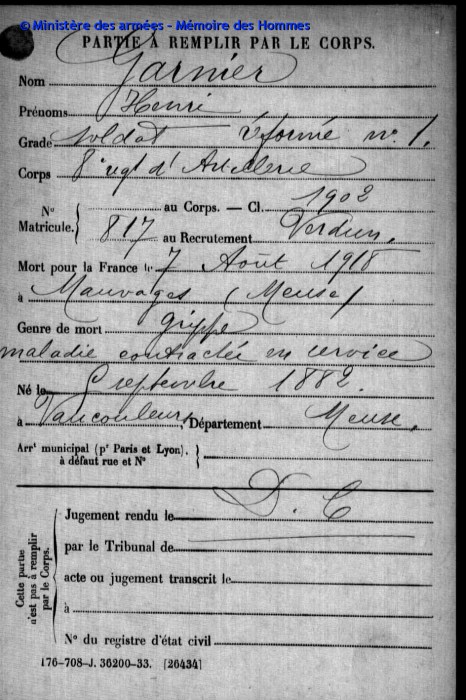 © Ministère des armées - Mémoire des Hommes
PARTIE À REMPLIR PAR LE CORPS.
Nom Garnier
Prénoms Henri
Grade soldat réformé n° 1.
Corps 8e regt d'Artillerie
N° Matricule. { au Corps. — Cl. 1902
817 au Recrutement Verdun.
Mort pour la France le 7 Août 1918
à Mauvages (Meuse)
Genre de mort grippe
maladie contractée en service
Né le septembre 1882.
à Vaucouleurs, Département Meuse.
Arrt municipal (pr Paris et Lyon), à défaut rue et N° }
D. C
Cette partie n'est pas à remplir par le Corps.
Jugement rendu le
par le Tribunal de
acte ou jugement transcrit le
à
N° du registre d'état civil
176-708-J. 36200-33. [26434]